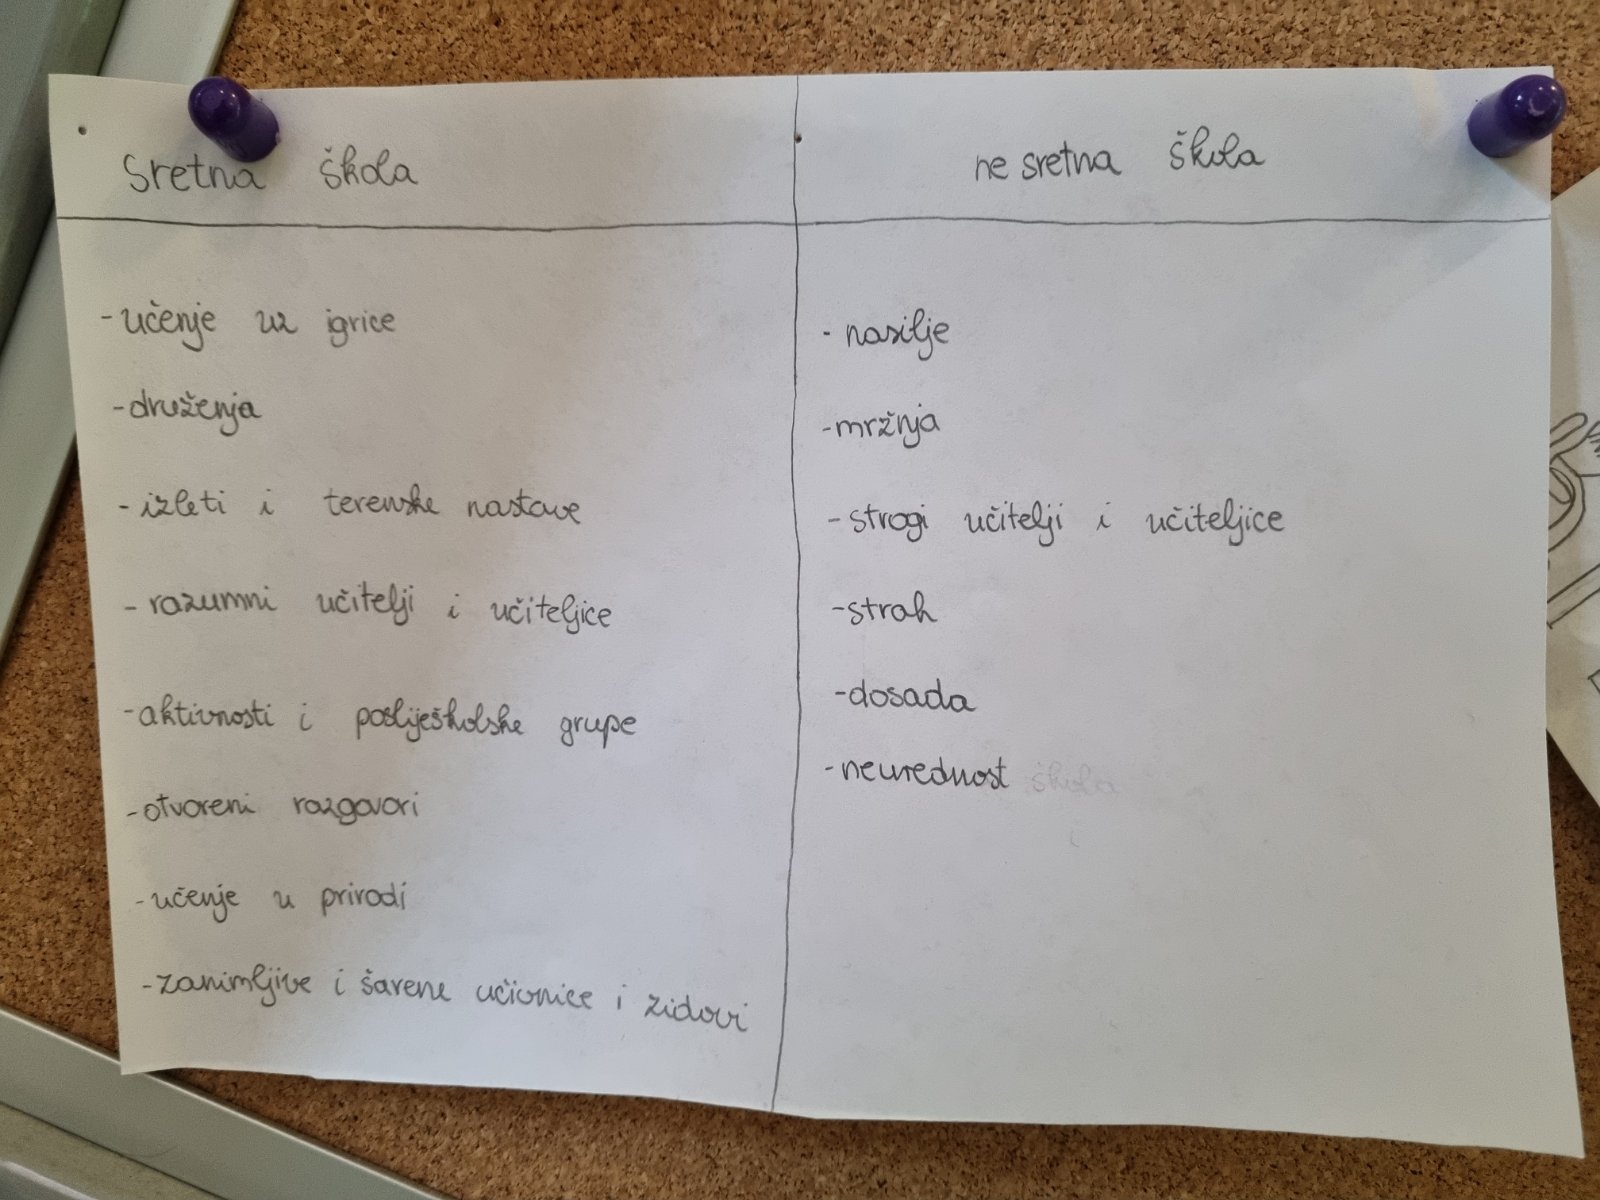 Sretna škola
- učenje uz igrice
- druženja
- izleti i terenske nastave
- razumni učitelji i učiteljice
- aktivnosti i posliješkolske grupe
- otvoreni razgovori
- učenje u prirodi
- zanimljive i šarene učionice i zidovi
ne sretna škola
- nasilje
- mržnja
- strogi učitelji i učiteljice
- strah
- dosada
- neurednost škola